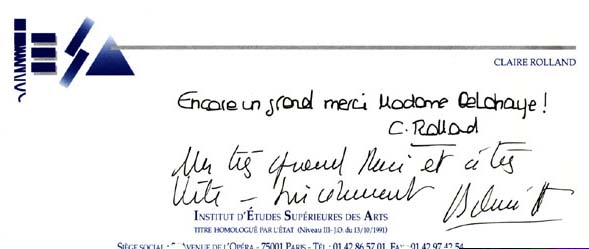 IESA
CLAIRE ROLLAND
Encore un grand merci Madame Delahaye!
C. Rolland
Un très grand Merci et à très
Vite - Sincèrement
INSTITUT D'ÉTUDES SUPÉRIEURES DES ARTS
TITRE HOMOLOGUÉ PAR L'ÉTAT (Niveau III- J.O. du 13/10/1991)
SIÈGE SOCIAL : AVENUE DE L'OPÉRA - 75001 PARIS - TÉL : 01 42 86 57 01 FAX : 01 42 97 42 54